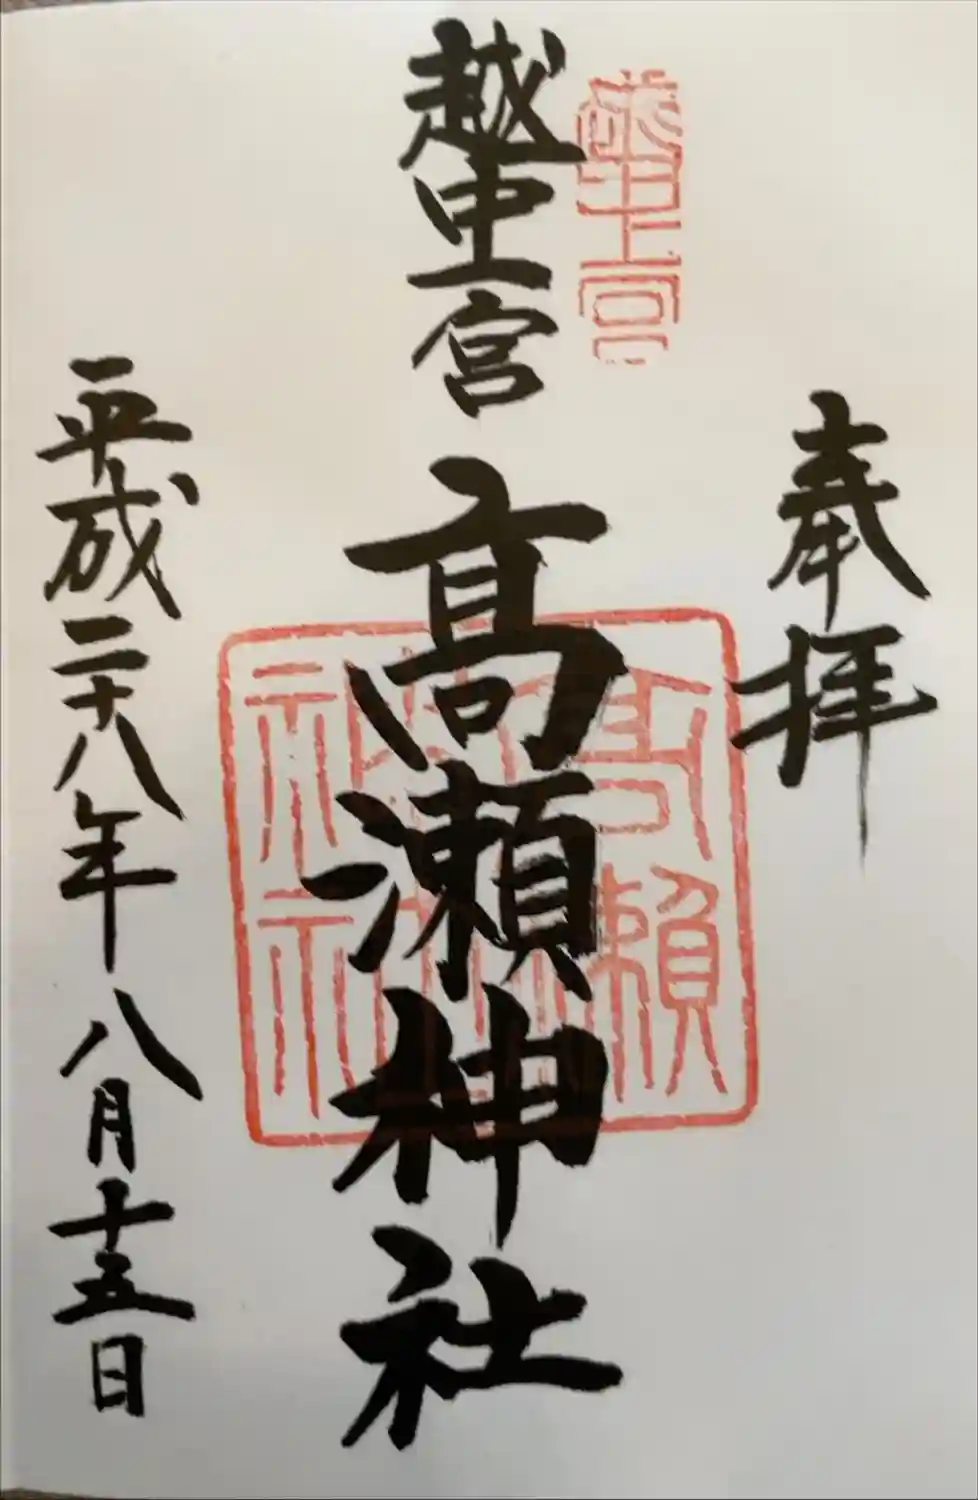 奉拝
越中一宮
越中一宮 髙瀬神社
高瀬
神社
平成二十八年 八月十五日